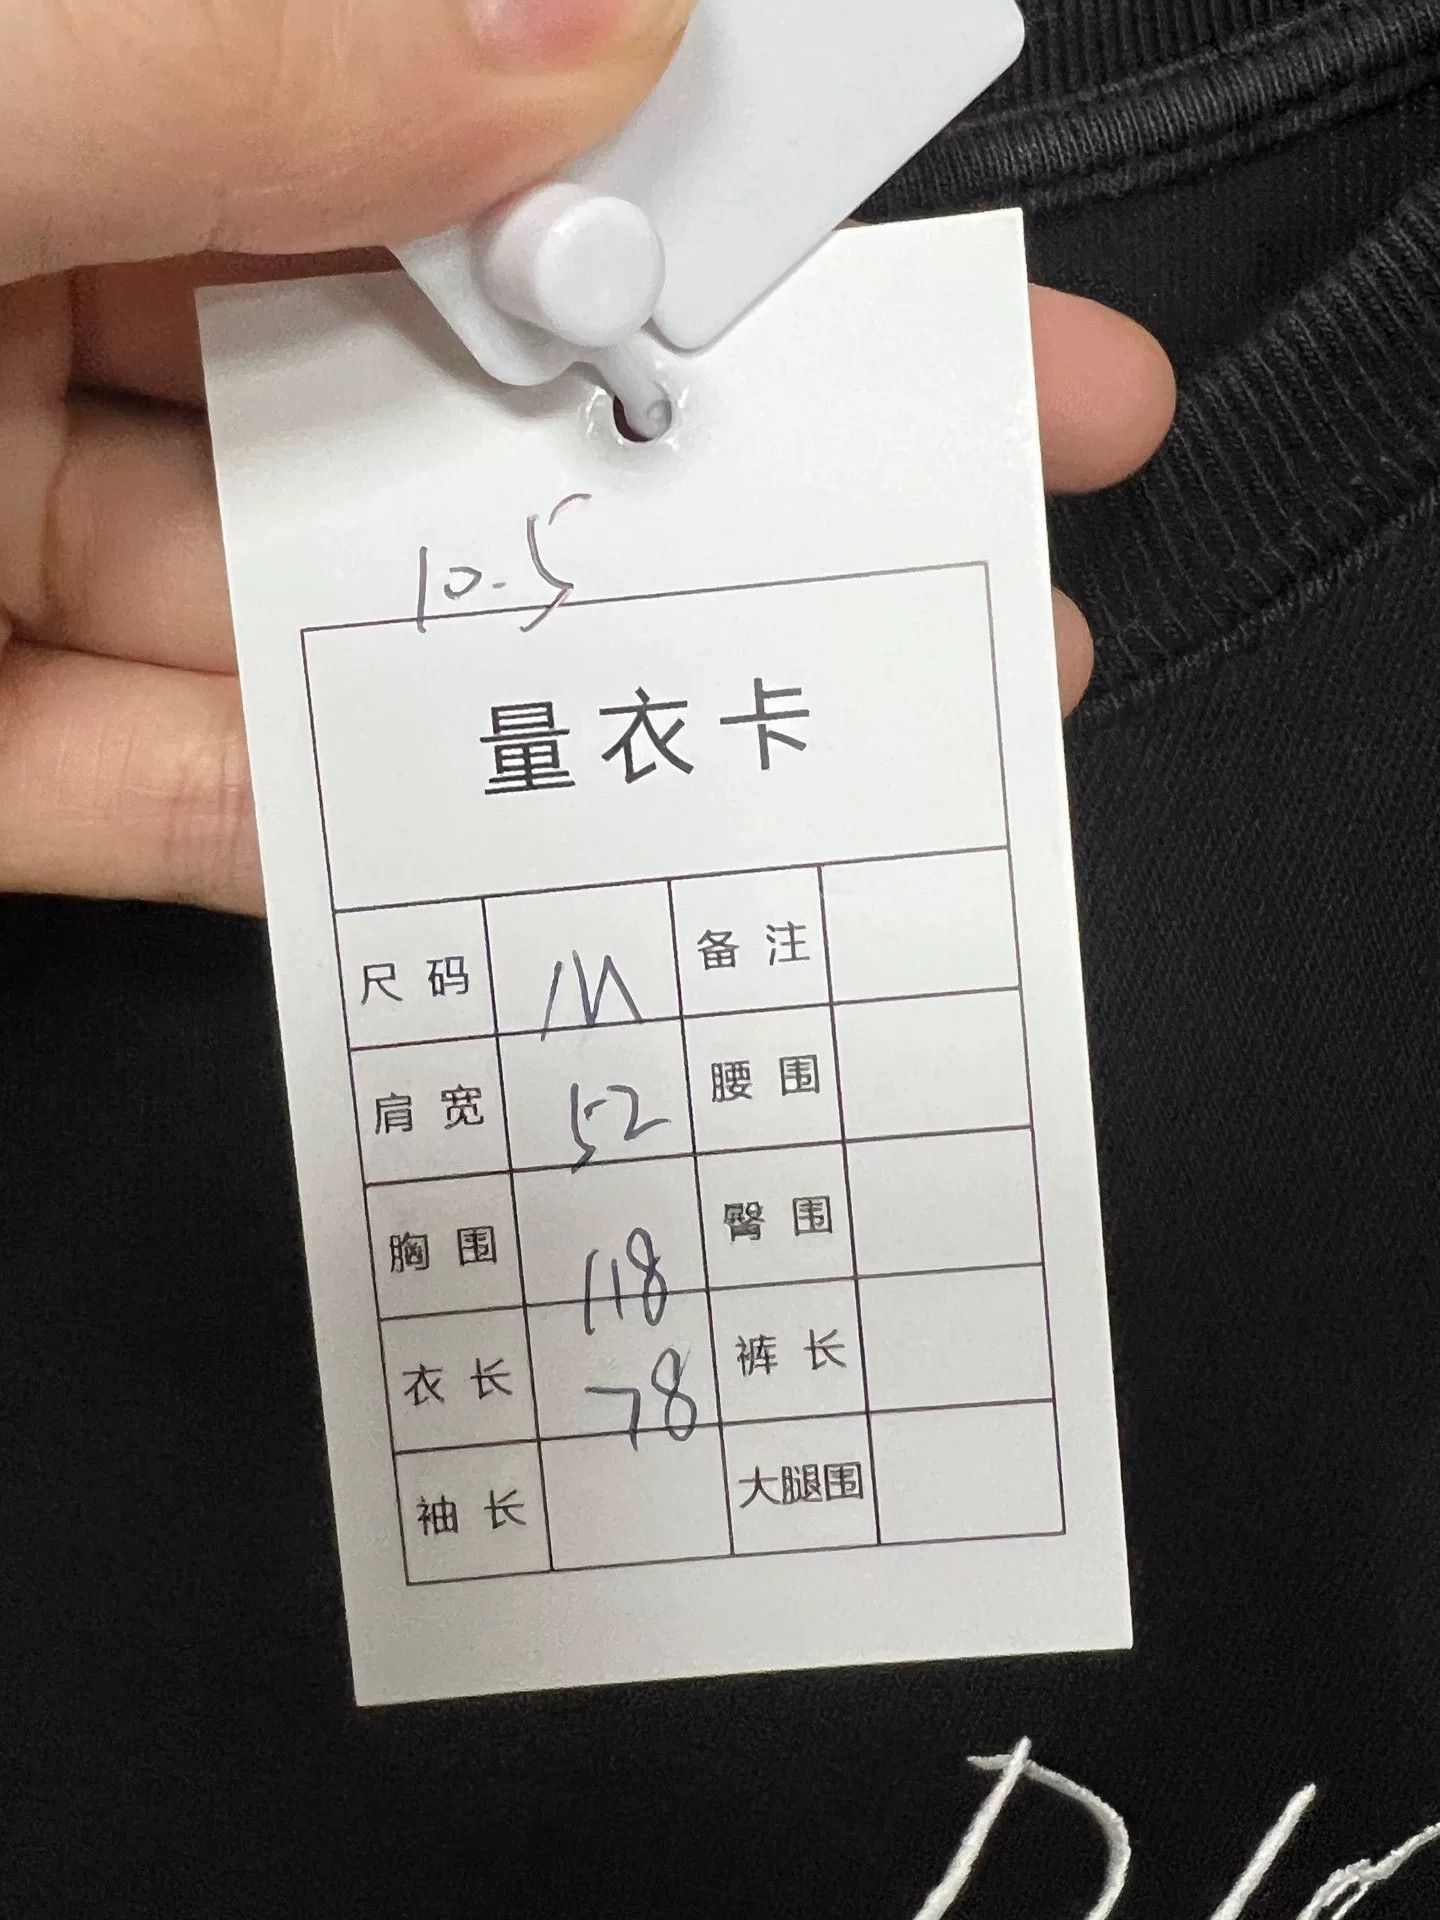 10.5
量衣卡
尺码 M 备注
肩宽 52 腰围
胸围 118 臀围
衣长 78 裤长
袖长 大腿围